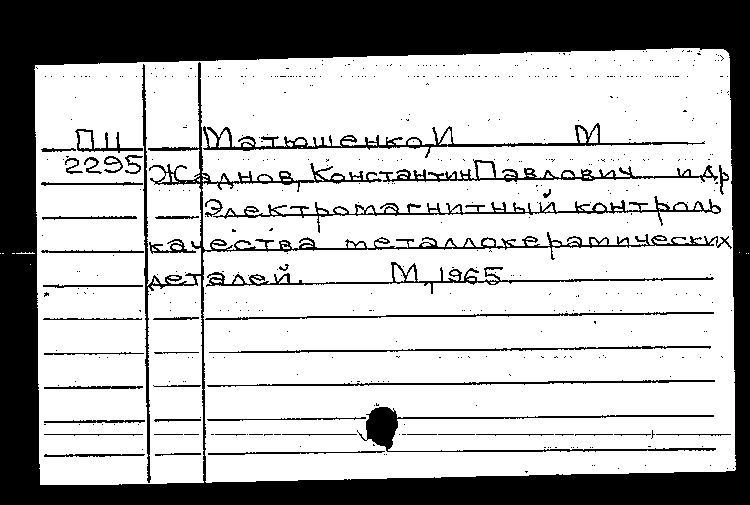 П11 Матюшенко, И М
2295 Жаднов, Константин Павлович и др.
Электромагнитный контроль
качества металлокерамических
деталей. М, 1965.